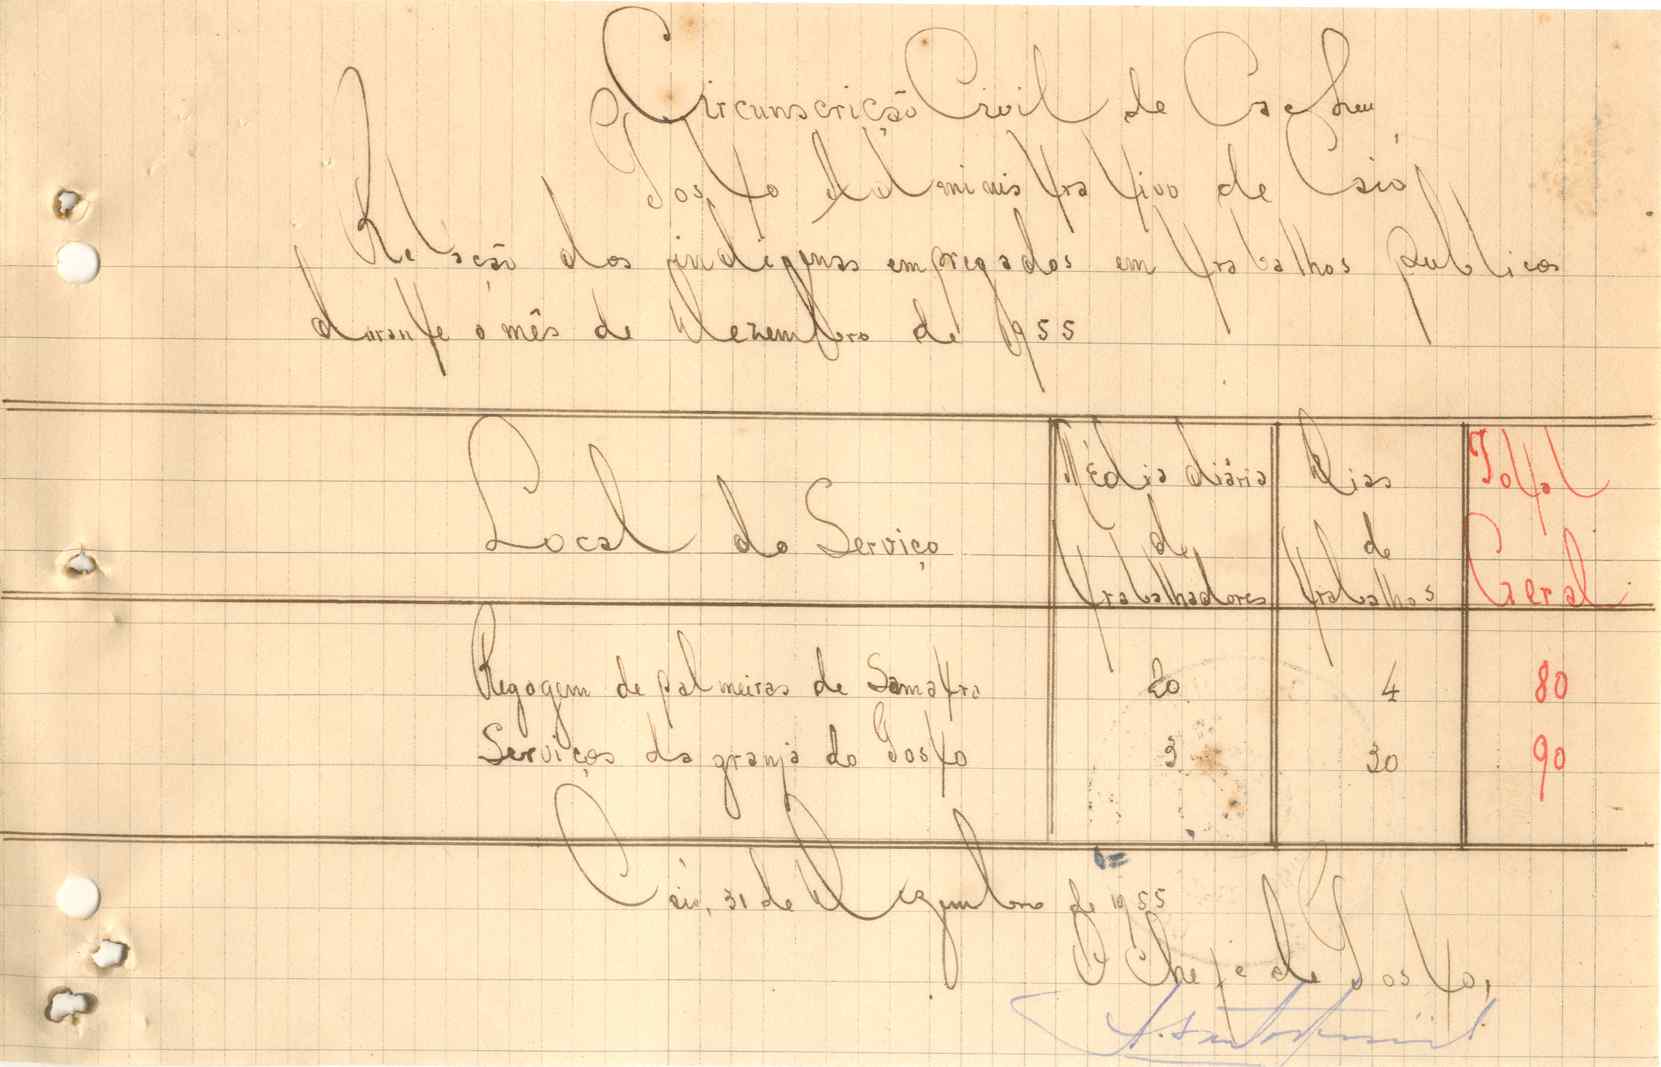 Circunscrição Civil de Cacheu
Posto Administrativo de Caió
Relação dos indigenas empregados em trabalhos publicos
durante o mês de Dezembro de 1955
Local do Serviço
Média diária de trabalhadores
Dias de trabalhos
Total Geral
Regagem de palmeiras de Samatra 20 4 80
Serviços da granja do Posto 3 30 90
Caió, 31 de Dezembro de 1955
O Chefe de Posto,